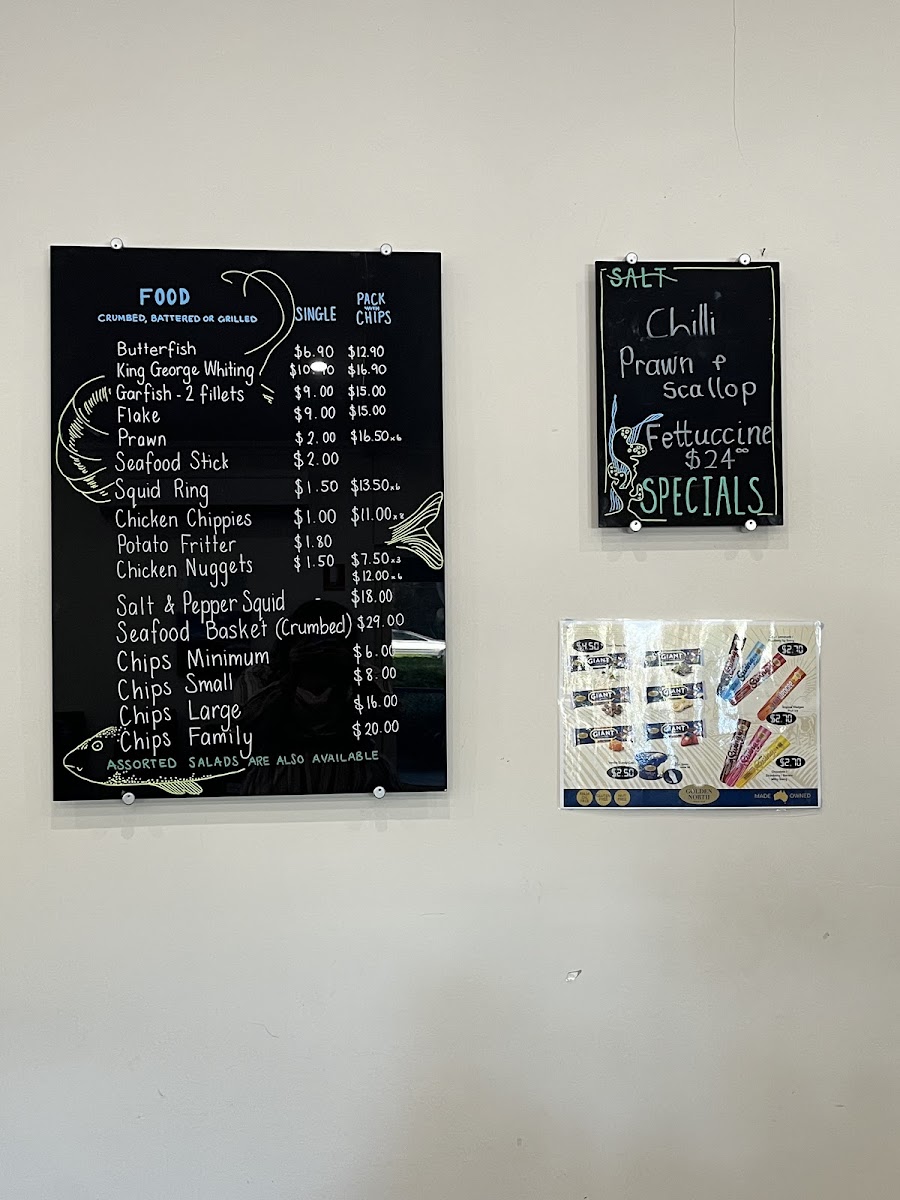 FOOD
CRUMBED, BATTERED OR GRILLED
SINGLE
PACK
WITH
CHIPS
Butterfish $6.90 $12.90
King George Whiting $16.90
Garfish - 2 fillets $9.00 $15.00
Flake $9.00 $15.00
Prawn $2.00 $16.50 x6
Seafood Stick $2.00
Squid Ring $1.50 $13.50 x6
Chicken Chippies $1.00 $11.00 x8
Potato Fritter $1.80
Chicken Nuggets $1.50 $7.50 x3
$12.00 x6
Salt & Pepper Squid - $18.00
Seafood Basket (Crumbed) $29.00
Chips Minimum $6.00
Chips Small $8.00
Chips Large $16.00
Chips Family $20.00
ASSORTED SALADS ARE ALSO AVAILABLE
SALT
Chilli
Prawn &
Scallop
Fettuccine
$24.00
SPECIALS
$4.50
GIANT
GIANT
GIANT
GIANT
GIANT
GIANT
$2.50
$2.70
$2.70
$2.70
GOLDEN
NORTH
MADE OWNED